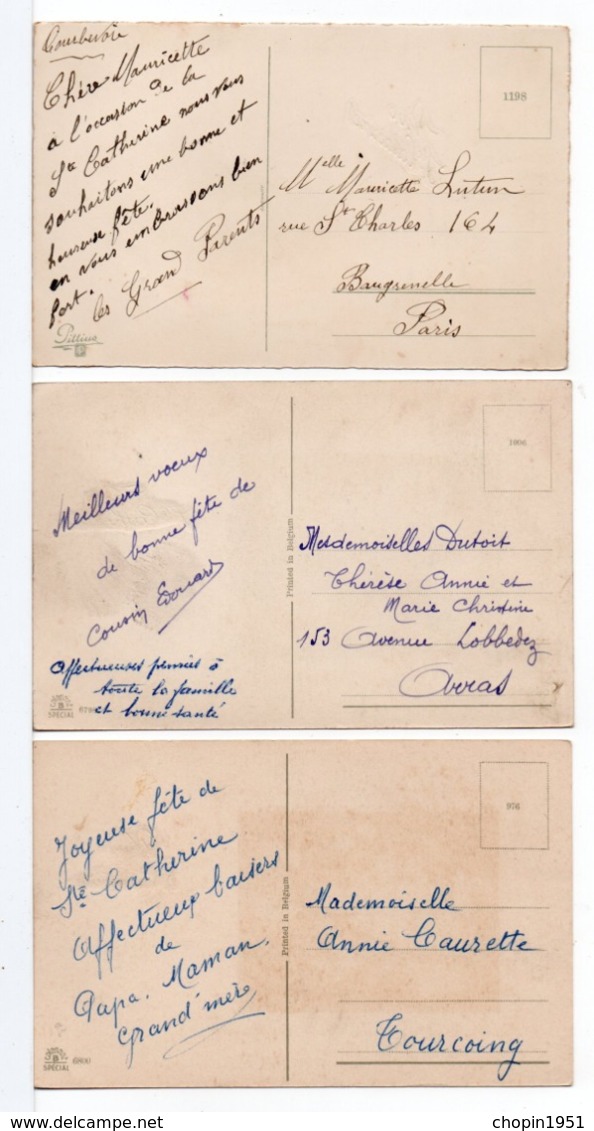 Courbevoie
Chère Mauricette
à l'occasion de la
Ste Catherine nous vous
souhaitons une bonne et
heureuse fête.
en vous embrassons bien
fort.
les Grand Parents
1198
Melle Mauricette Lutun
rue St Charles 164
Baugrenelle
Paris
Meilleurs voeux
de bonne fête de
Cousin Edouard
Affectueuses pensées à
toute la famille
et bonne santé
SPECIAL
Printed in Belgium
Mesdemoiselles Dutoit
Thérèse Annie et
Marie Christine
153 Avenue Lobbedez
Arras
Joyeuse fête de
Ste Catherine
Affectueux baisers
de
Papa. Maman.
Grand'mère
SPECIAL
Printed in Belgium
976
Mademoiselle
Annie Caurette
Tourcoing
chopin1951